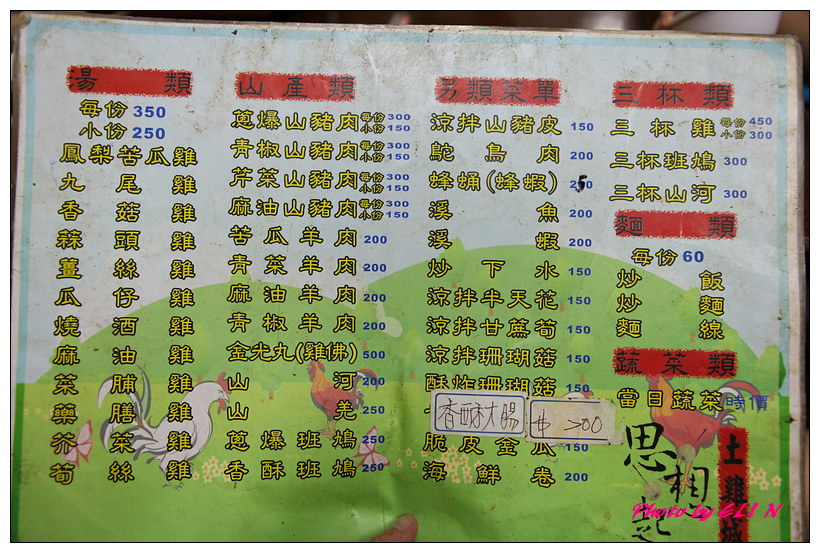 湯類
每份 350
小份 250
鳳梨苦瓜雞
九尾雞
香菇雞
蒜頭雞
薑絲雞
瓜仔雞
燒酒雞
麻油雞
菜脯雞
藥膳雞
芥菜雞
筍絲雞
山產類
蔥爆山豬肉 每份300 小份150
青椒山豬肉 每份300 小份150
芹菜山豬肉 每份300 小份150
麻油山豬肉 每份300 小份150
苦瓜羊肉 200
青菜羊肉 200
麻油羊肉 200
青椒羊肉 200
金光丸(雞佛) 500
山河 200
山羌 250
蔥爆班鳩 250
香酥班鳩 250
類菜單
涼拌山豬皮 150
鴕鳥肉 200
蜂蛹(蜂蝦) 250
溪魚 200
溪蝦 200
炒下水 150
涼拌半天花 150
涼拌甘蔗筍 150
涼拌珊瑚菇 150
酥炸珊瑚菇 150
香酥大腸 $200
脆皮金瓜 150
海鮮卷 200
三杯類
三杯雞 每份450 小份300
三杯班鳩 300
三杯山河 300
麵類
每份 60
炒飯
炒麵
麵線
蔬菜類
當日蔬菜 時價
思想起
土雞城
Photo by ELIN